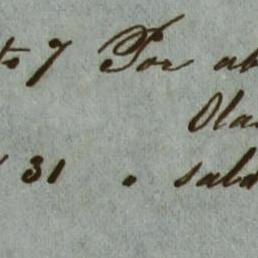 to 7 Por ab
Ola
31 " sald